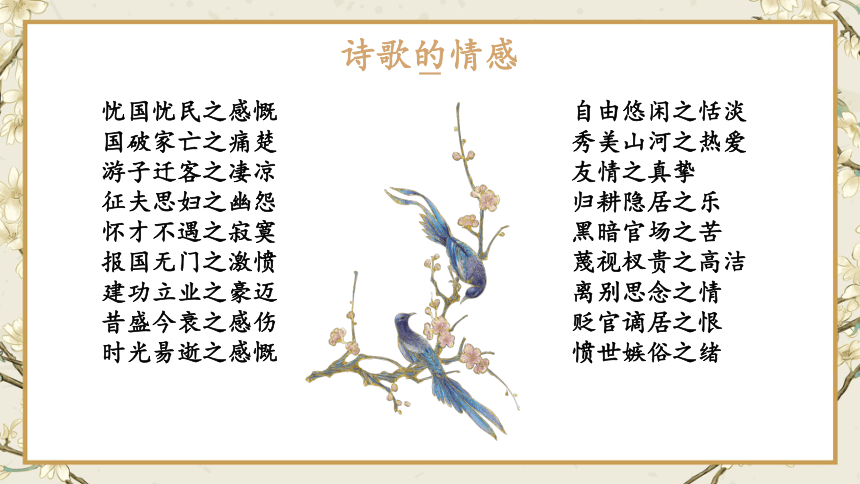 诗歌的情感
忧国忧民之感慨
国破家亡之痛楚
游子迁客之凄凉
征夫思妇之幽怨
怀才不遇之寂寞
报国无门之激愤
建功立业之豪迈
昔盛今衰之感伤
时光易逝之感慨
自由悠闲之恬淡
秀美山河之热爱
友情之真挚
归耕隐居之乐
黑暗官场之苦
蔑视权贵之高洁
离别思念之情
贬官谪居之恨
愤世嫉俗之绪